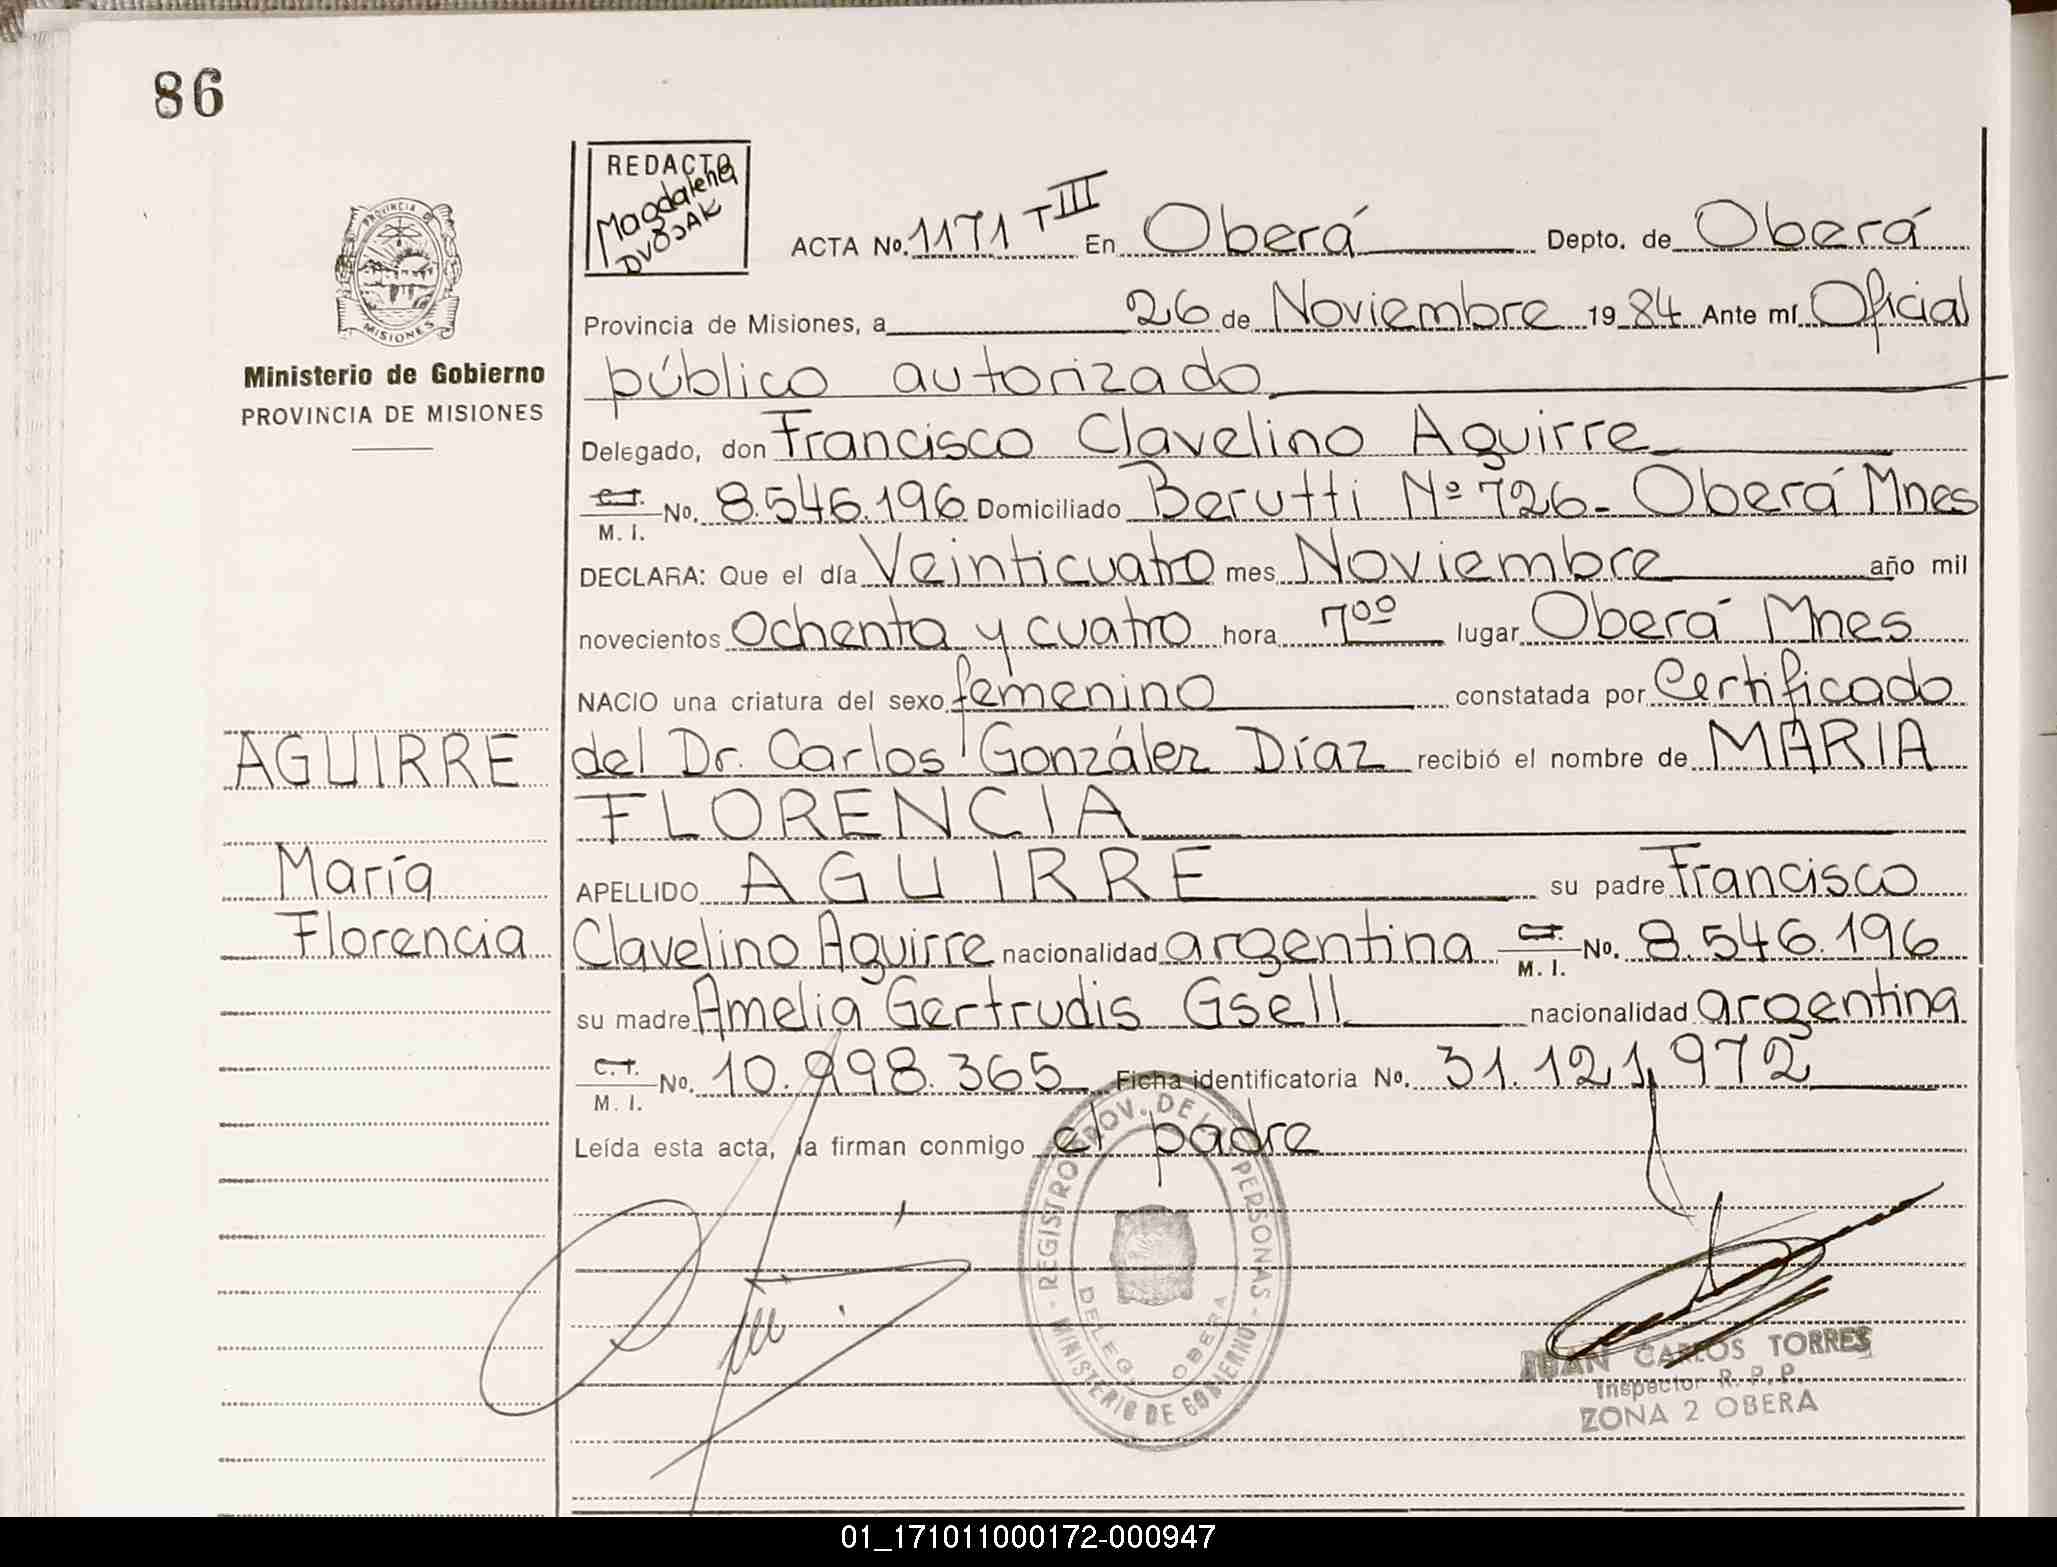 86
PROVINCIA DE
MISIONES
Ministerio de Gobierno
PROVINCIA DE MISIONES
REDACTO
Magdalena
DVOJAK
ACTA No. 1171 T III En Oberá Depto. de Oberá
Provincia de Misiones, a 26 de Noviembre 19 84 Ante mí Oficial
público autorizado
Delegado, don Francisco Clavelino Aguirre
C.I.
M. I. No. 8.546.196 Domiciliado Berutti Nº 726 - Oberá Mnes
DECLARA: Que el día Veinticuatro mes Noviembre año mil
novecientos Ochenta y cuatro hora 7⁰⁰ lugar Oberá Mnes
NACIO una criatura del sexo femenino constatada por Certificado
AGUIRRE
del Dr. Carlos González Díaz recibió el nombre de MARIA
FLORENCIA
María
APELLIDO AGUIRRE su padre Francisco
Florencia
Clavelino Aguirre nacionalidad argentina C.I. M. I. No. 8.546.196
su madre Amelia Gertrudis Gsell nacionalidad argentina
C.I.
M. I. No. 10.998.365 Ficha identificatoria No. 31.121.972
Leída esta acta, la firman conmigo el padre
REGISTRO PROV. DE LAS PERSONAS - MINISTERIO DE GOBIERNO -
DELEG. OBERA
JUAN CARLOS TORRES
Inspector R. P. P.
ZONA 2 OBERA
01_171011000172-000947